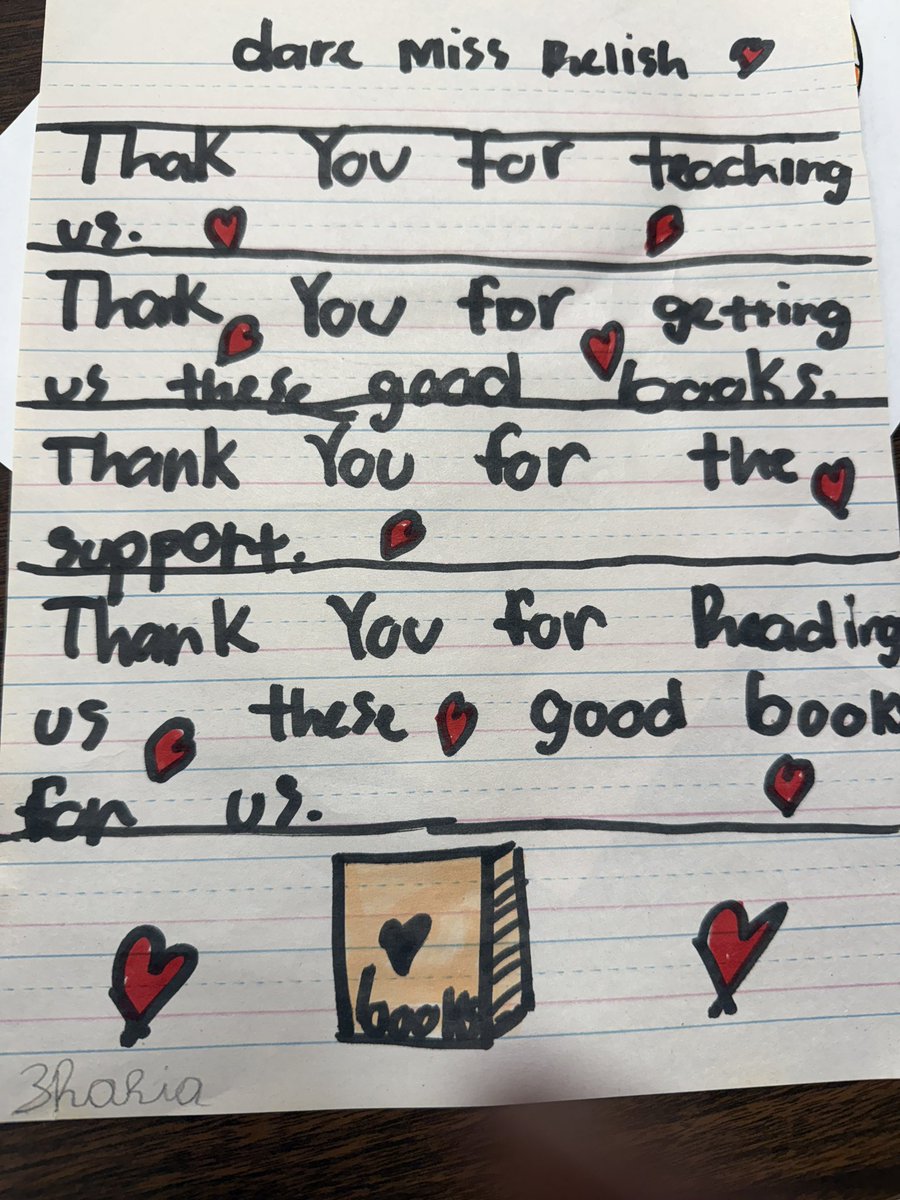 dare Miss Relish
Thak You for teaching
us.
Thak You for getting
us these good books.
Thank You for the
support.
Thank You for Reading
us these good book
for us.
books